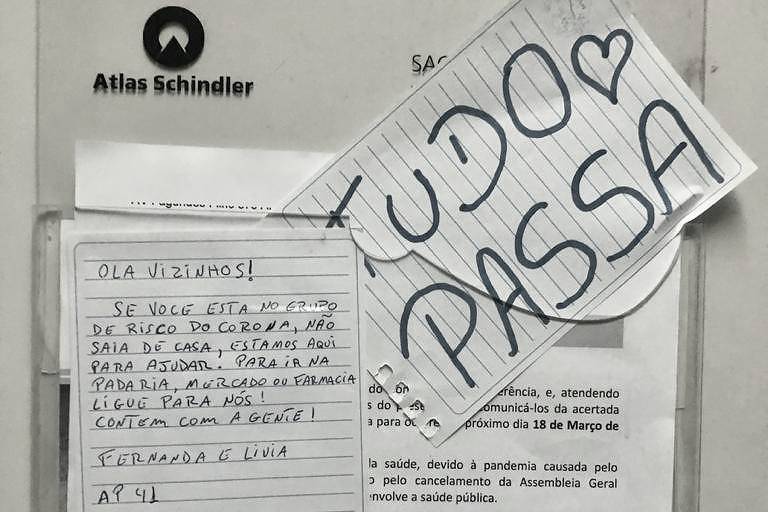 Atlas Schindler
SAC
TUDO ♡
PASSA
OLA VIZINHOS!
SE VOCE ESTA NO GRUPO
DE RISCO DO CORONA, NÃO
SAIA DE CASA, ESTAMOS AQUI
PARA AJUDAR. PARA IR NA
PADARIA, MERCADO OU FARMACIA
LIGUE PARA NÓS!
CONTEM COM A GENTE!
FERNANDA E LIVIA
AP 41
do erência, e, atendendo
s do comunicá-los da acertada
a para próximo dia 18 de Março de
la saúde, devido à pandemia causada pelo
o pelo cancelamento da Assembleia Geral
envolve a saúde pública.